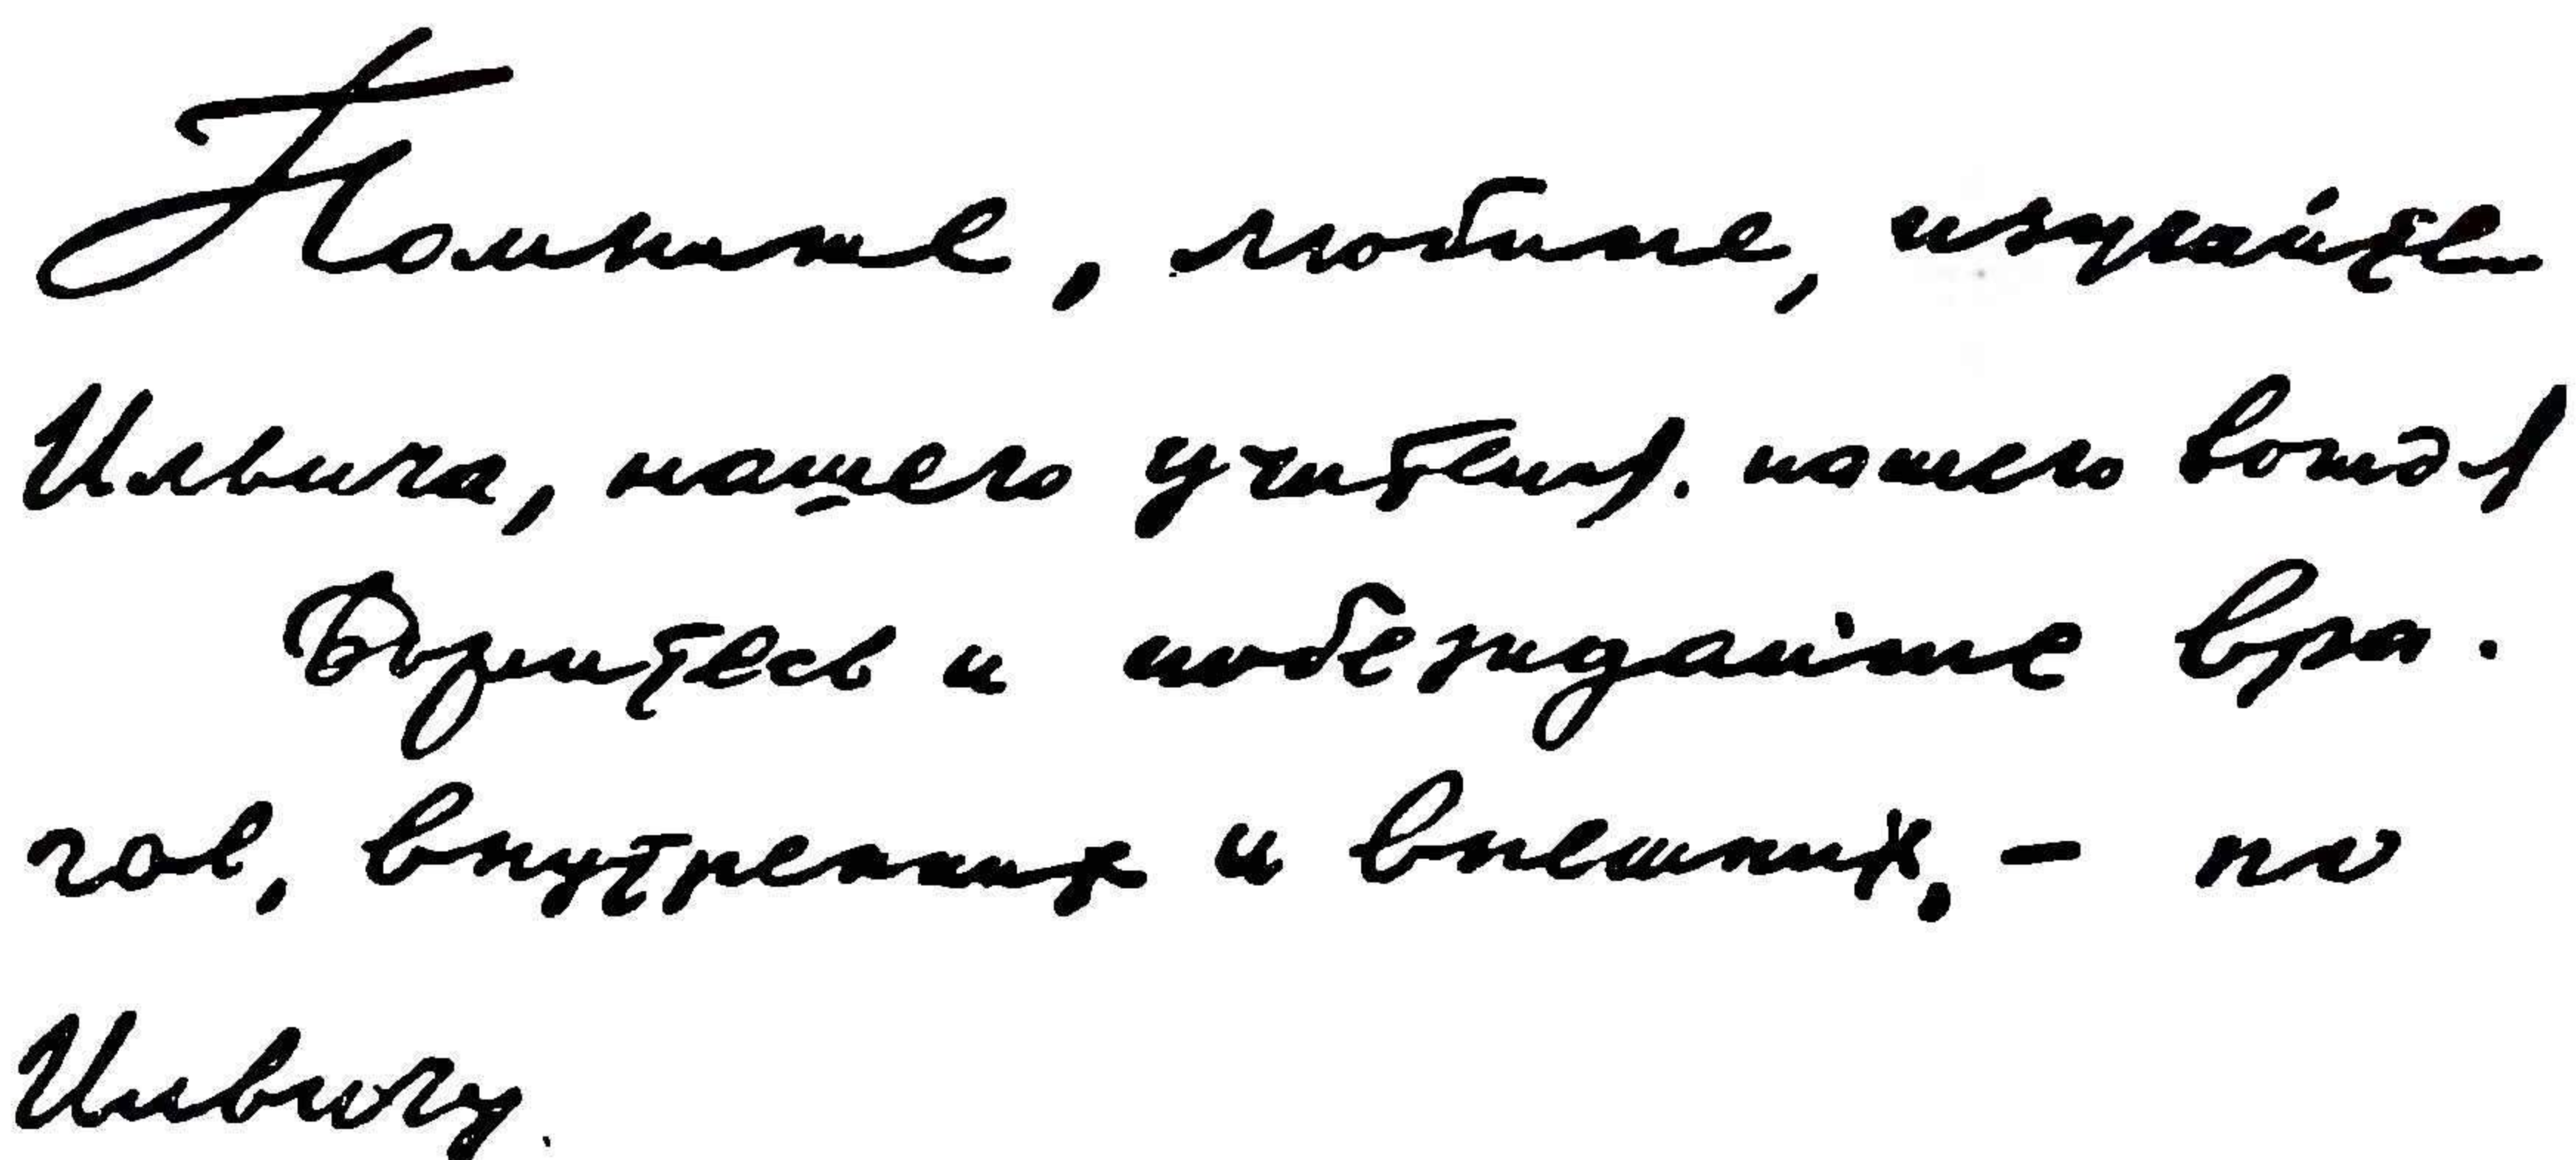 Помните, любите, изучайте
Ильича, нашего учителя, нашего вождя
Боритесь и побеждайте вра-
гов, внутренних и внешних, - по
Ильичу.